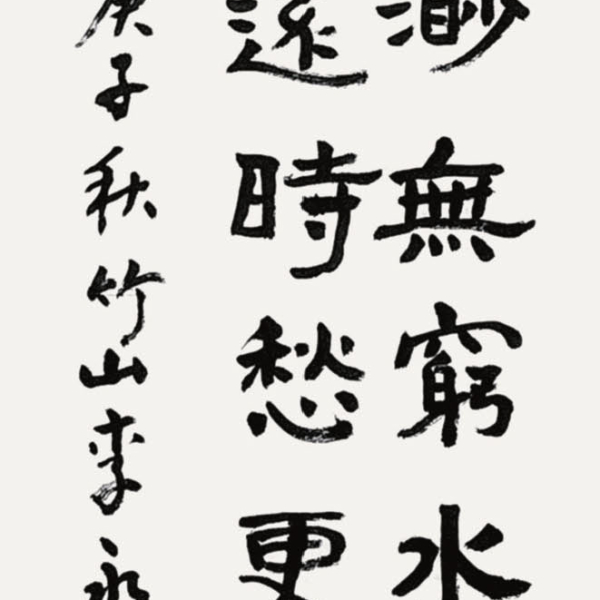 渺無窮水
遠時愁更
庚子秋竹山李永